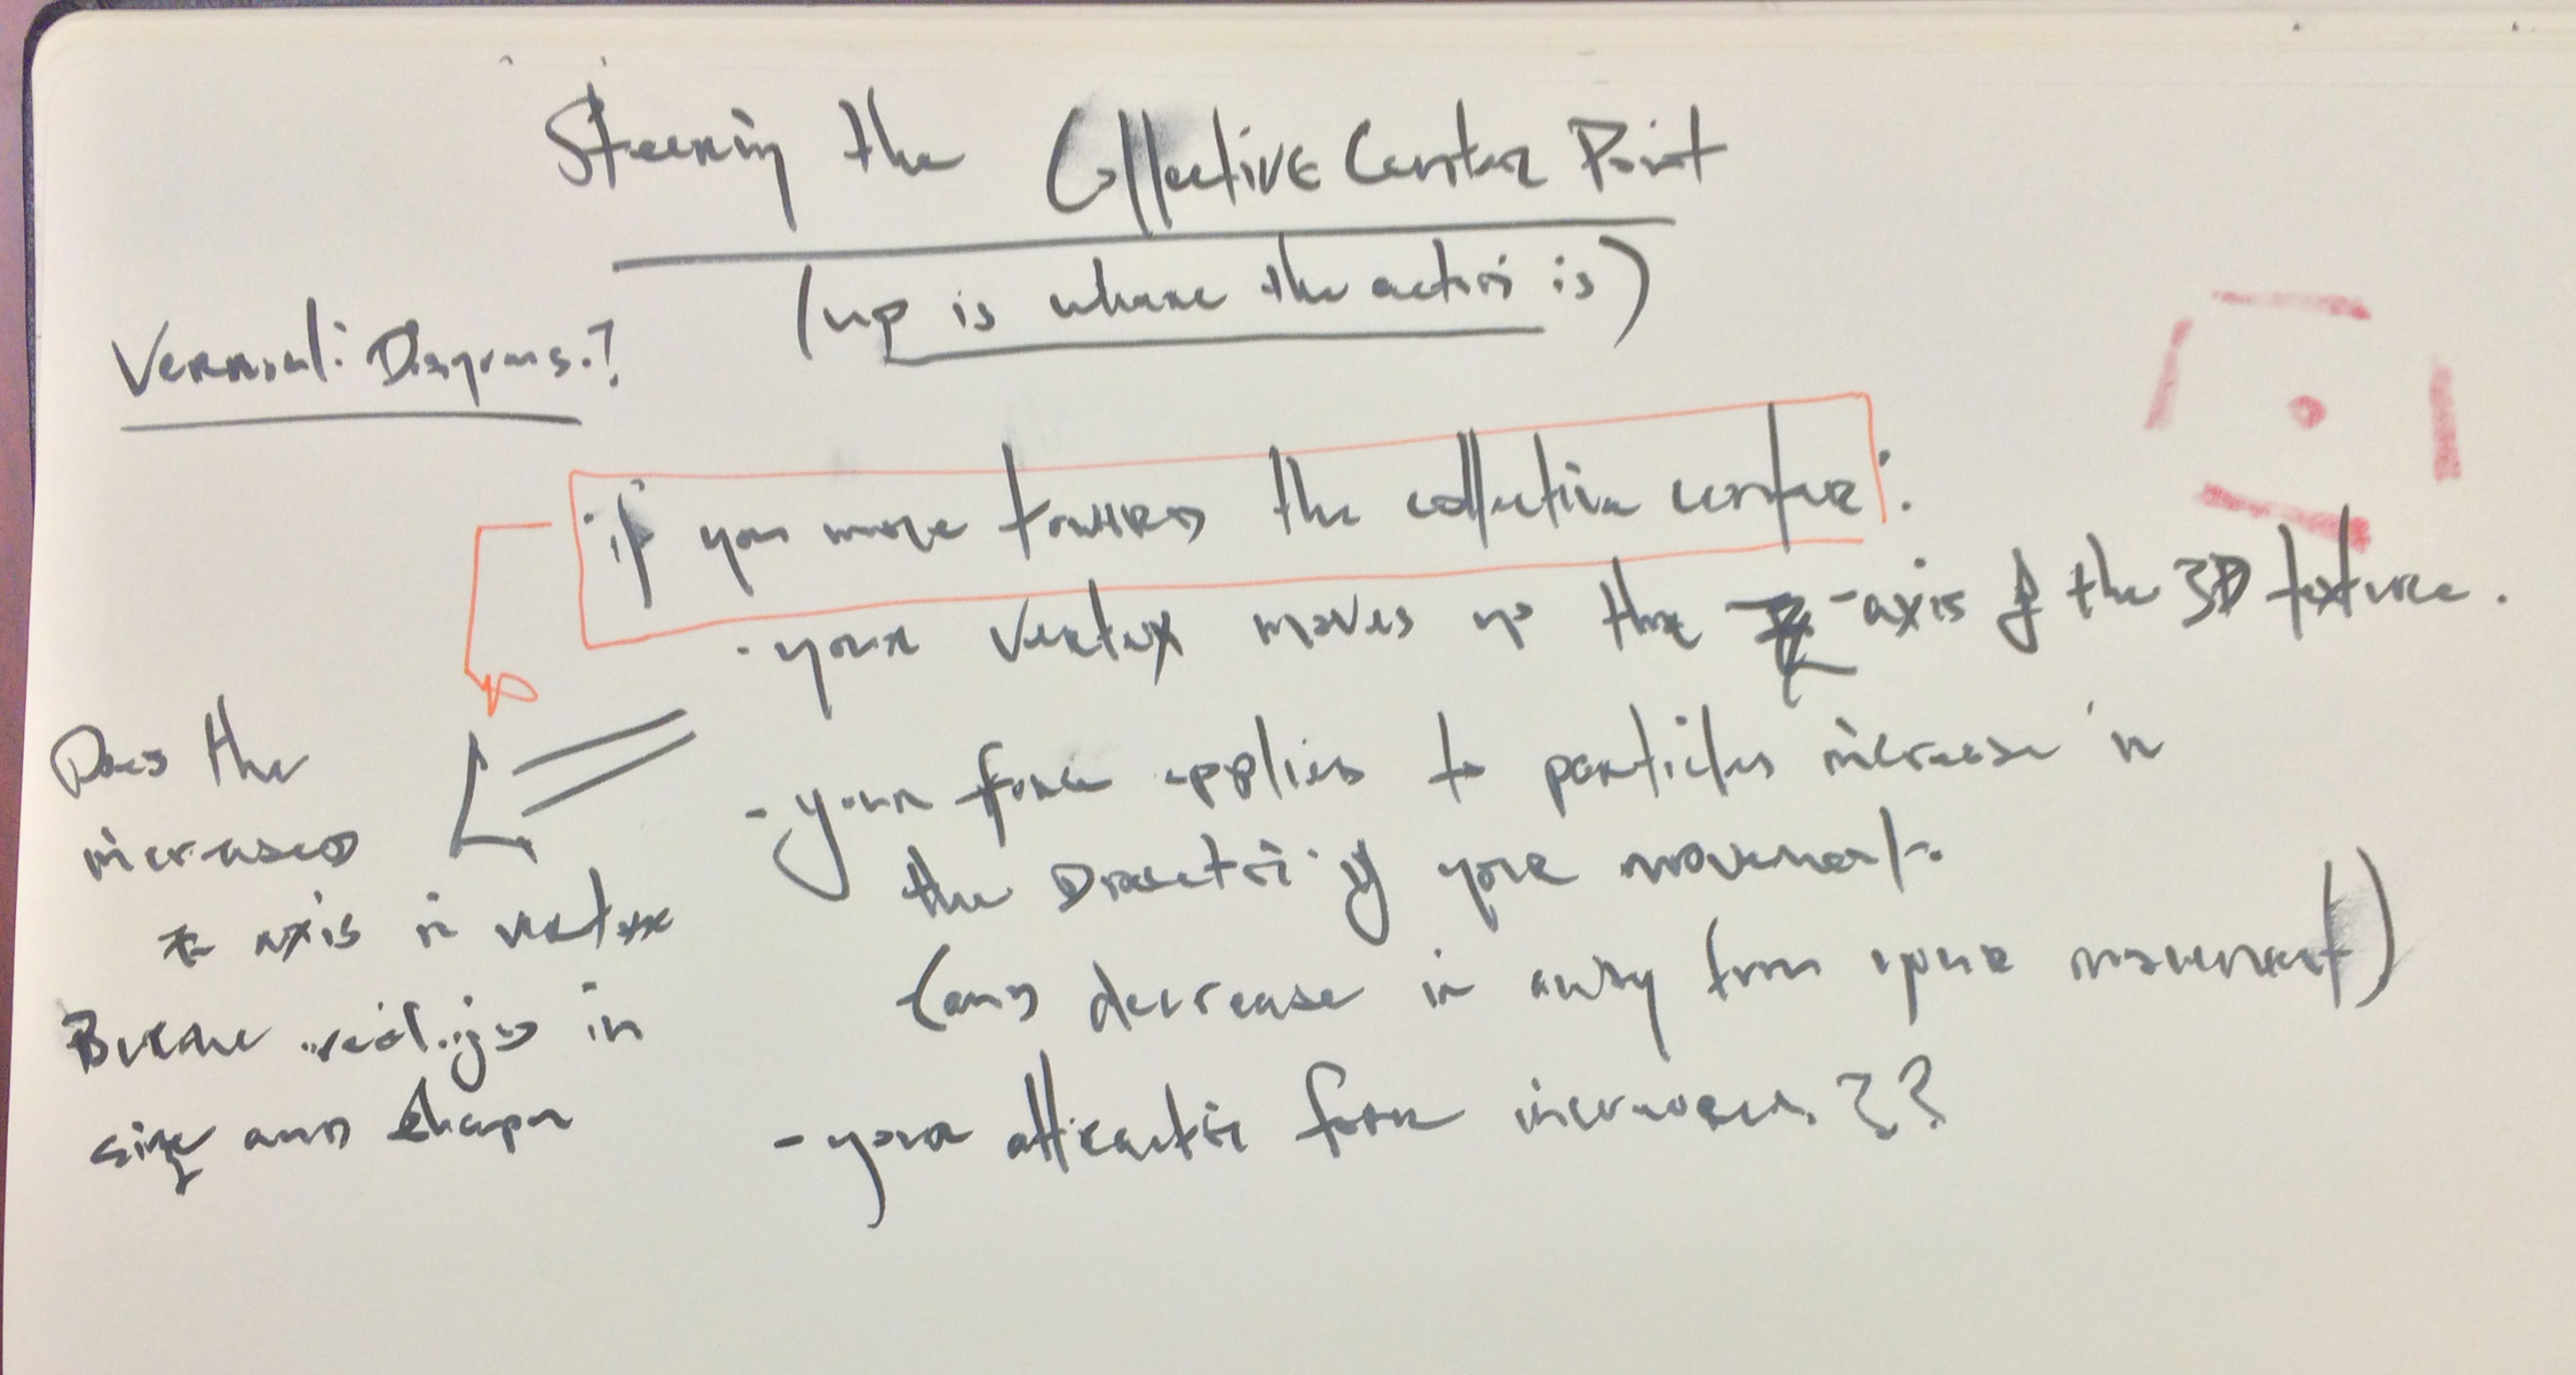 Steering the Collective Center Point
(up is where the action is)
Diagrams?
if you move towards the collective center:
- your vertex moves up the z-axis of the 3D texture.
- your force applies to particles increase in
the direction of your movement.
(and decrease in away from your movement)
- your attraction force increases??
Does the
increased
z axis in vertex
Become realized in
size and shape